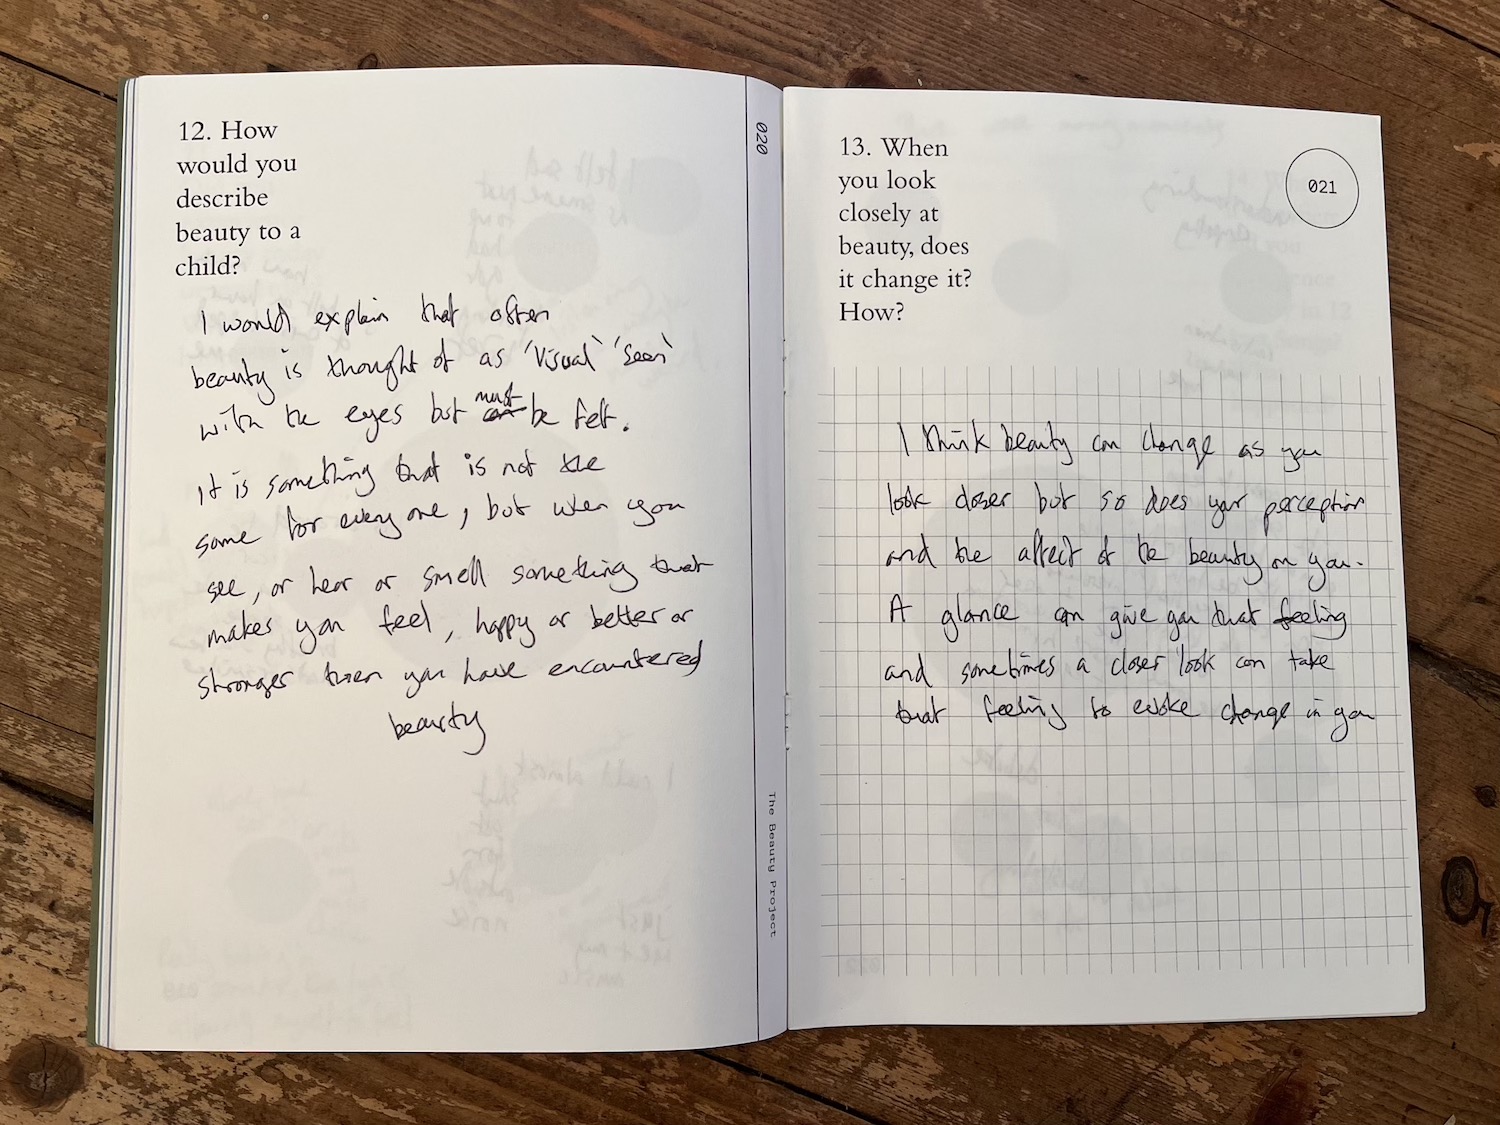 12. How
would you
describe
beauty to a
child?
I would explain that often
beauty is thought of as 'Visual' 'Seen'
with the eyes but can must be felt.
It is something that is not the
same for everyone, but when you
see, or hear or smell something that
makes you feel, happy or better or
stronger then you have encountered
beauty
020
The Beauty Project
13. When
you look
closely at
beauty, does
it change it?
How?
021
I think beauty can change as you
look closer but so does your perception
and the affect of the beauty on you.
A glance can give you that feeling
and sometimes a closer look can take
that feeling to evoke change in you